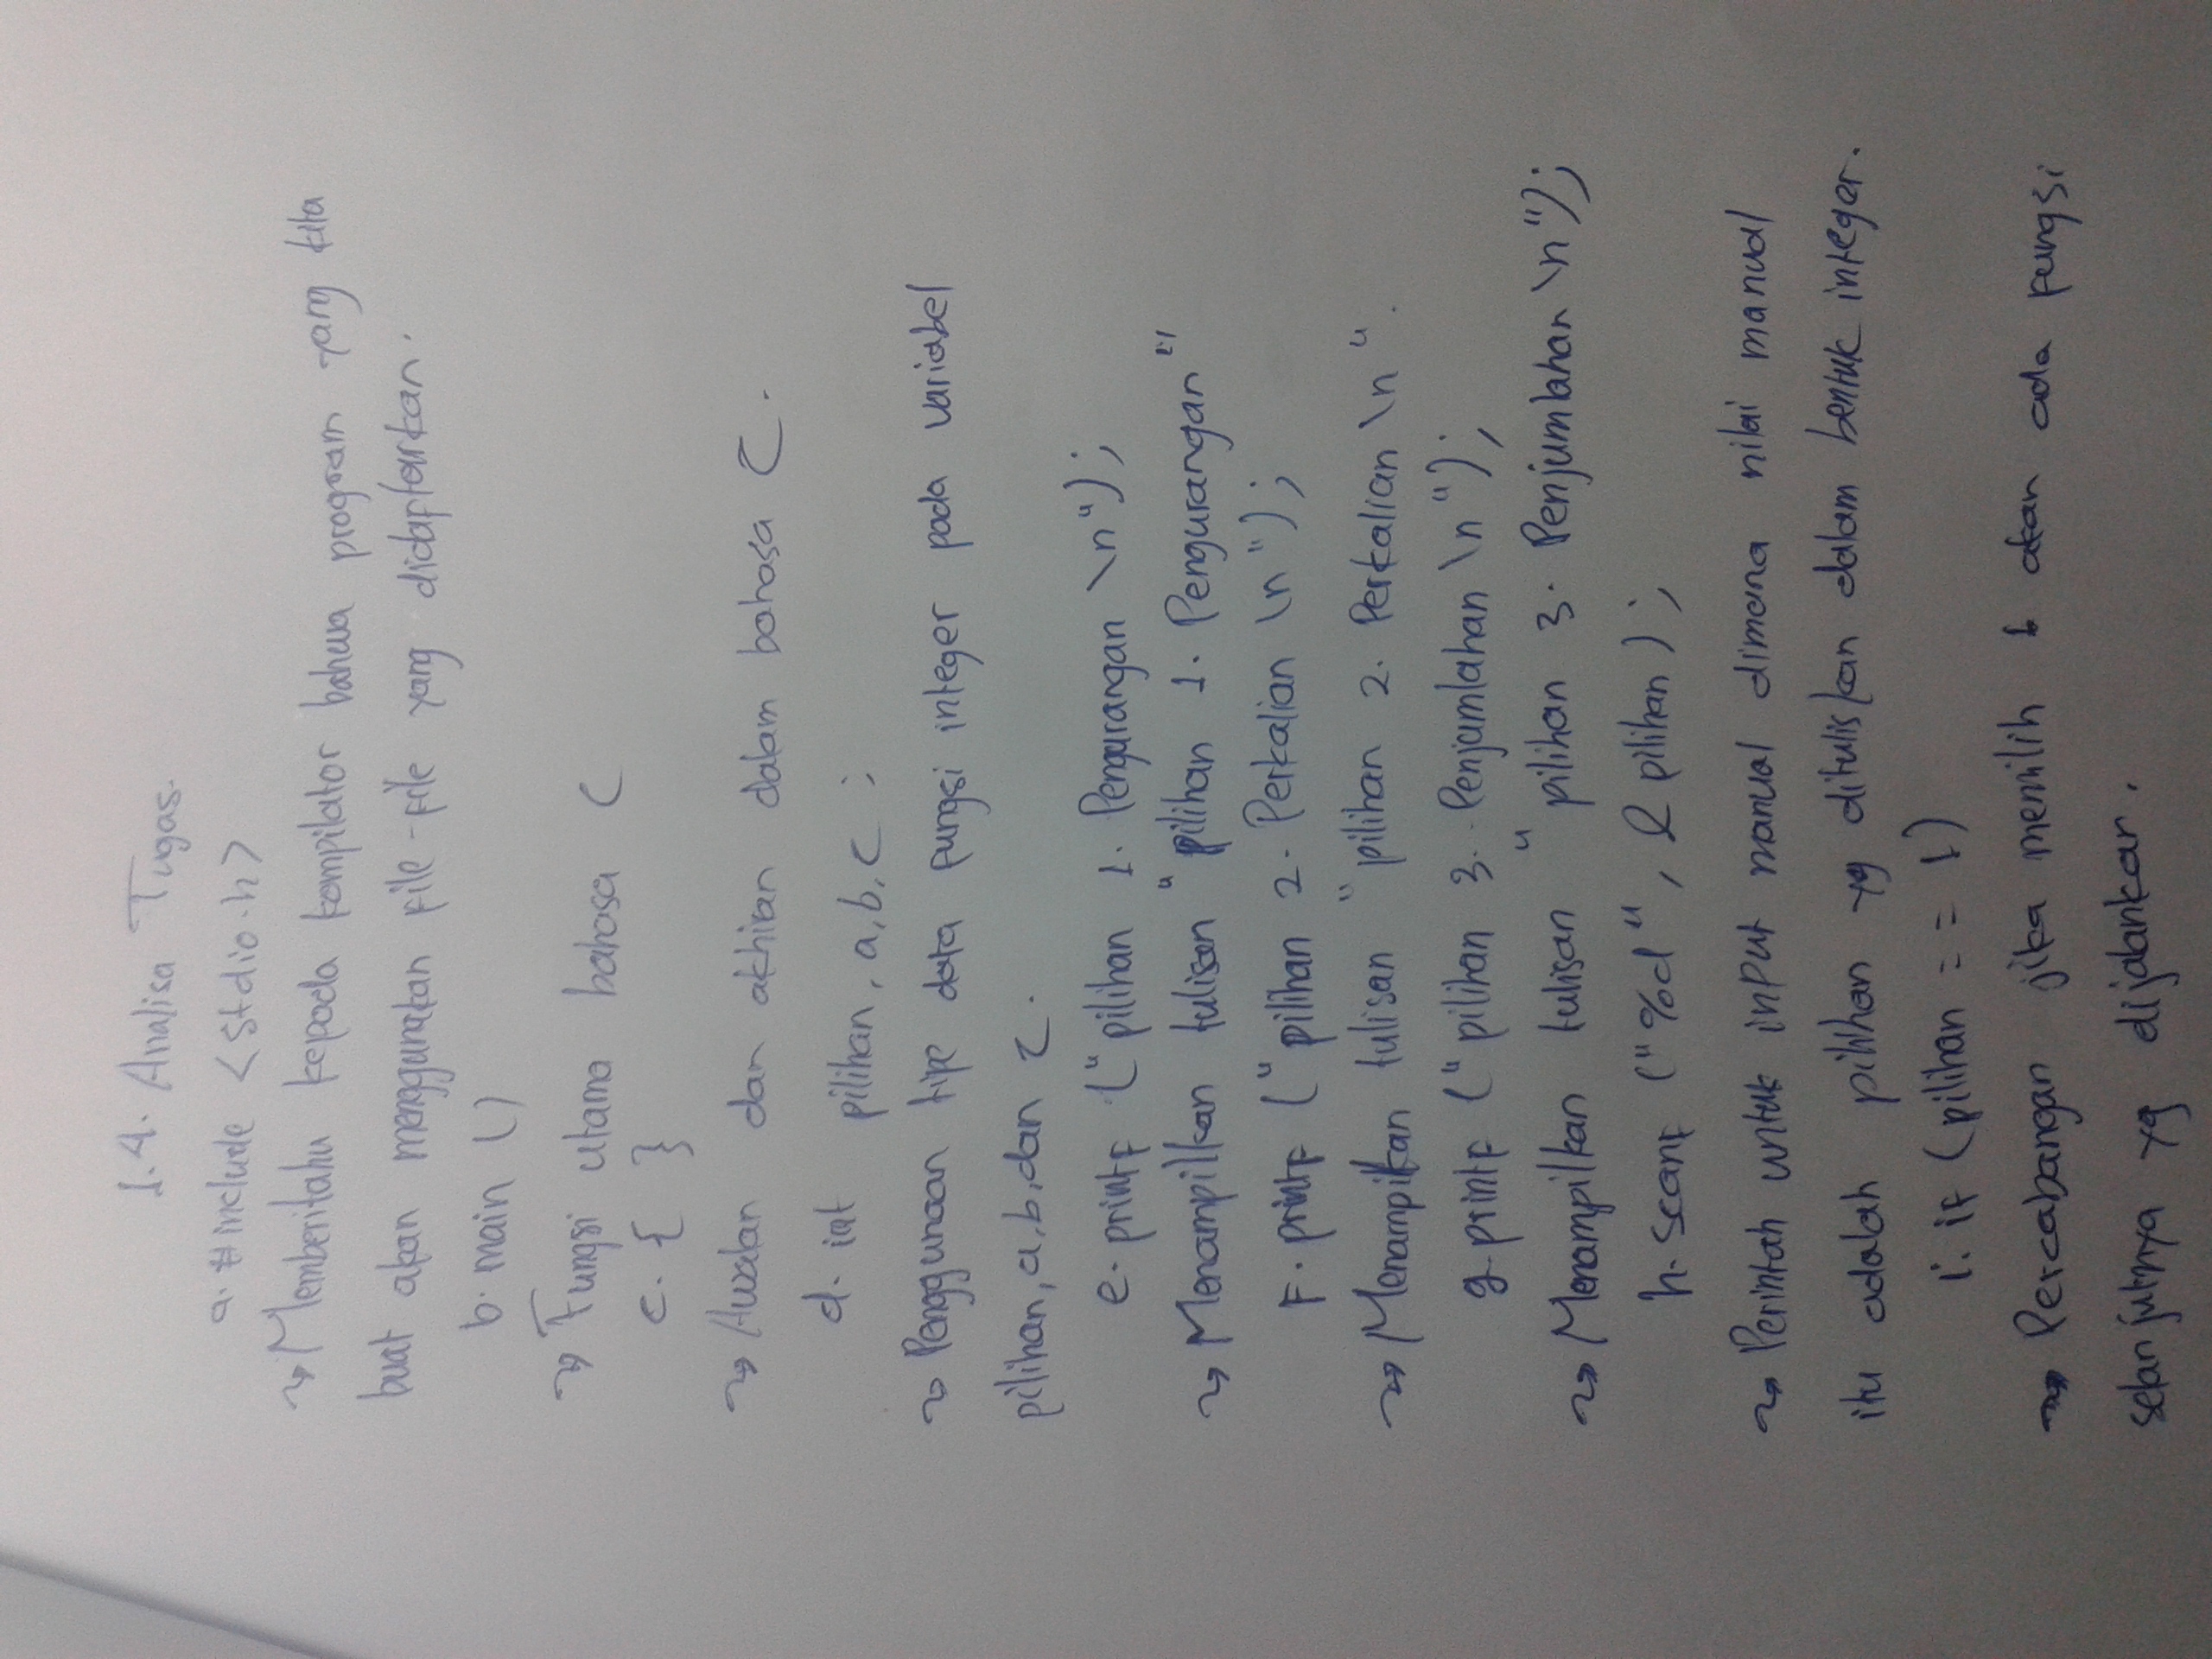 1.4. Analisa Tugas.
a. #include <stdio.h>
⤳ Memberitahu kepada kompilator bahwa program yang kita
buat akan menggunakan file-file yang didaftarkan.
b. main ()
⤳ Fungsi utama bahasa C
c. { }
⤳ Awalan dan akhiran dalam bahasa C.
d. int pilihan, a, b, c ;
⤳ Penggunaan tipe data fungsi integer pada variabel
pilihan, a, b, dan c.
e. printf ("pilihan 1. Pengurangan \n");
⤳ Menampilkan tulisan "pilihan 1. Pengurangan"
F. printf ("pilihan 2. Perkalian \n");
⤳ Menampilkan tulisan "pilihan 2. Perkalian \n".
g. printf ("pilihan 3. Penjumlahan \n");
⤳ Menampilkan tulisan "pilihan 3. Penjumlahan \n");
h. scanf ("%d", & pilihan);
⤳ Perintah untuk input manual dimana nilai manual
itu adalah pilihan yg dituliskan dalam bentuk integer.
i. if (pilihan == 1)
⤳ Percabangan jika memilih 1 akan ada fungsi
selanjutnya yg dijalankan.